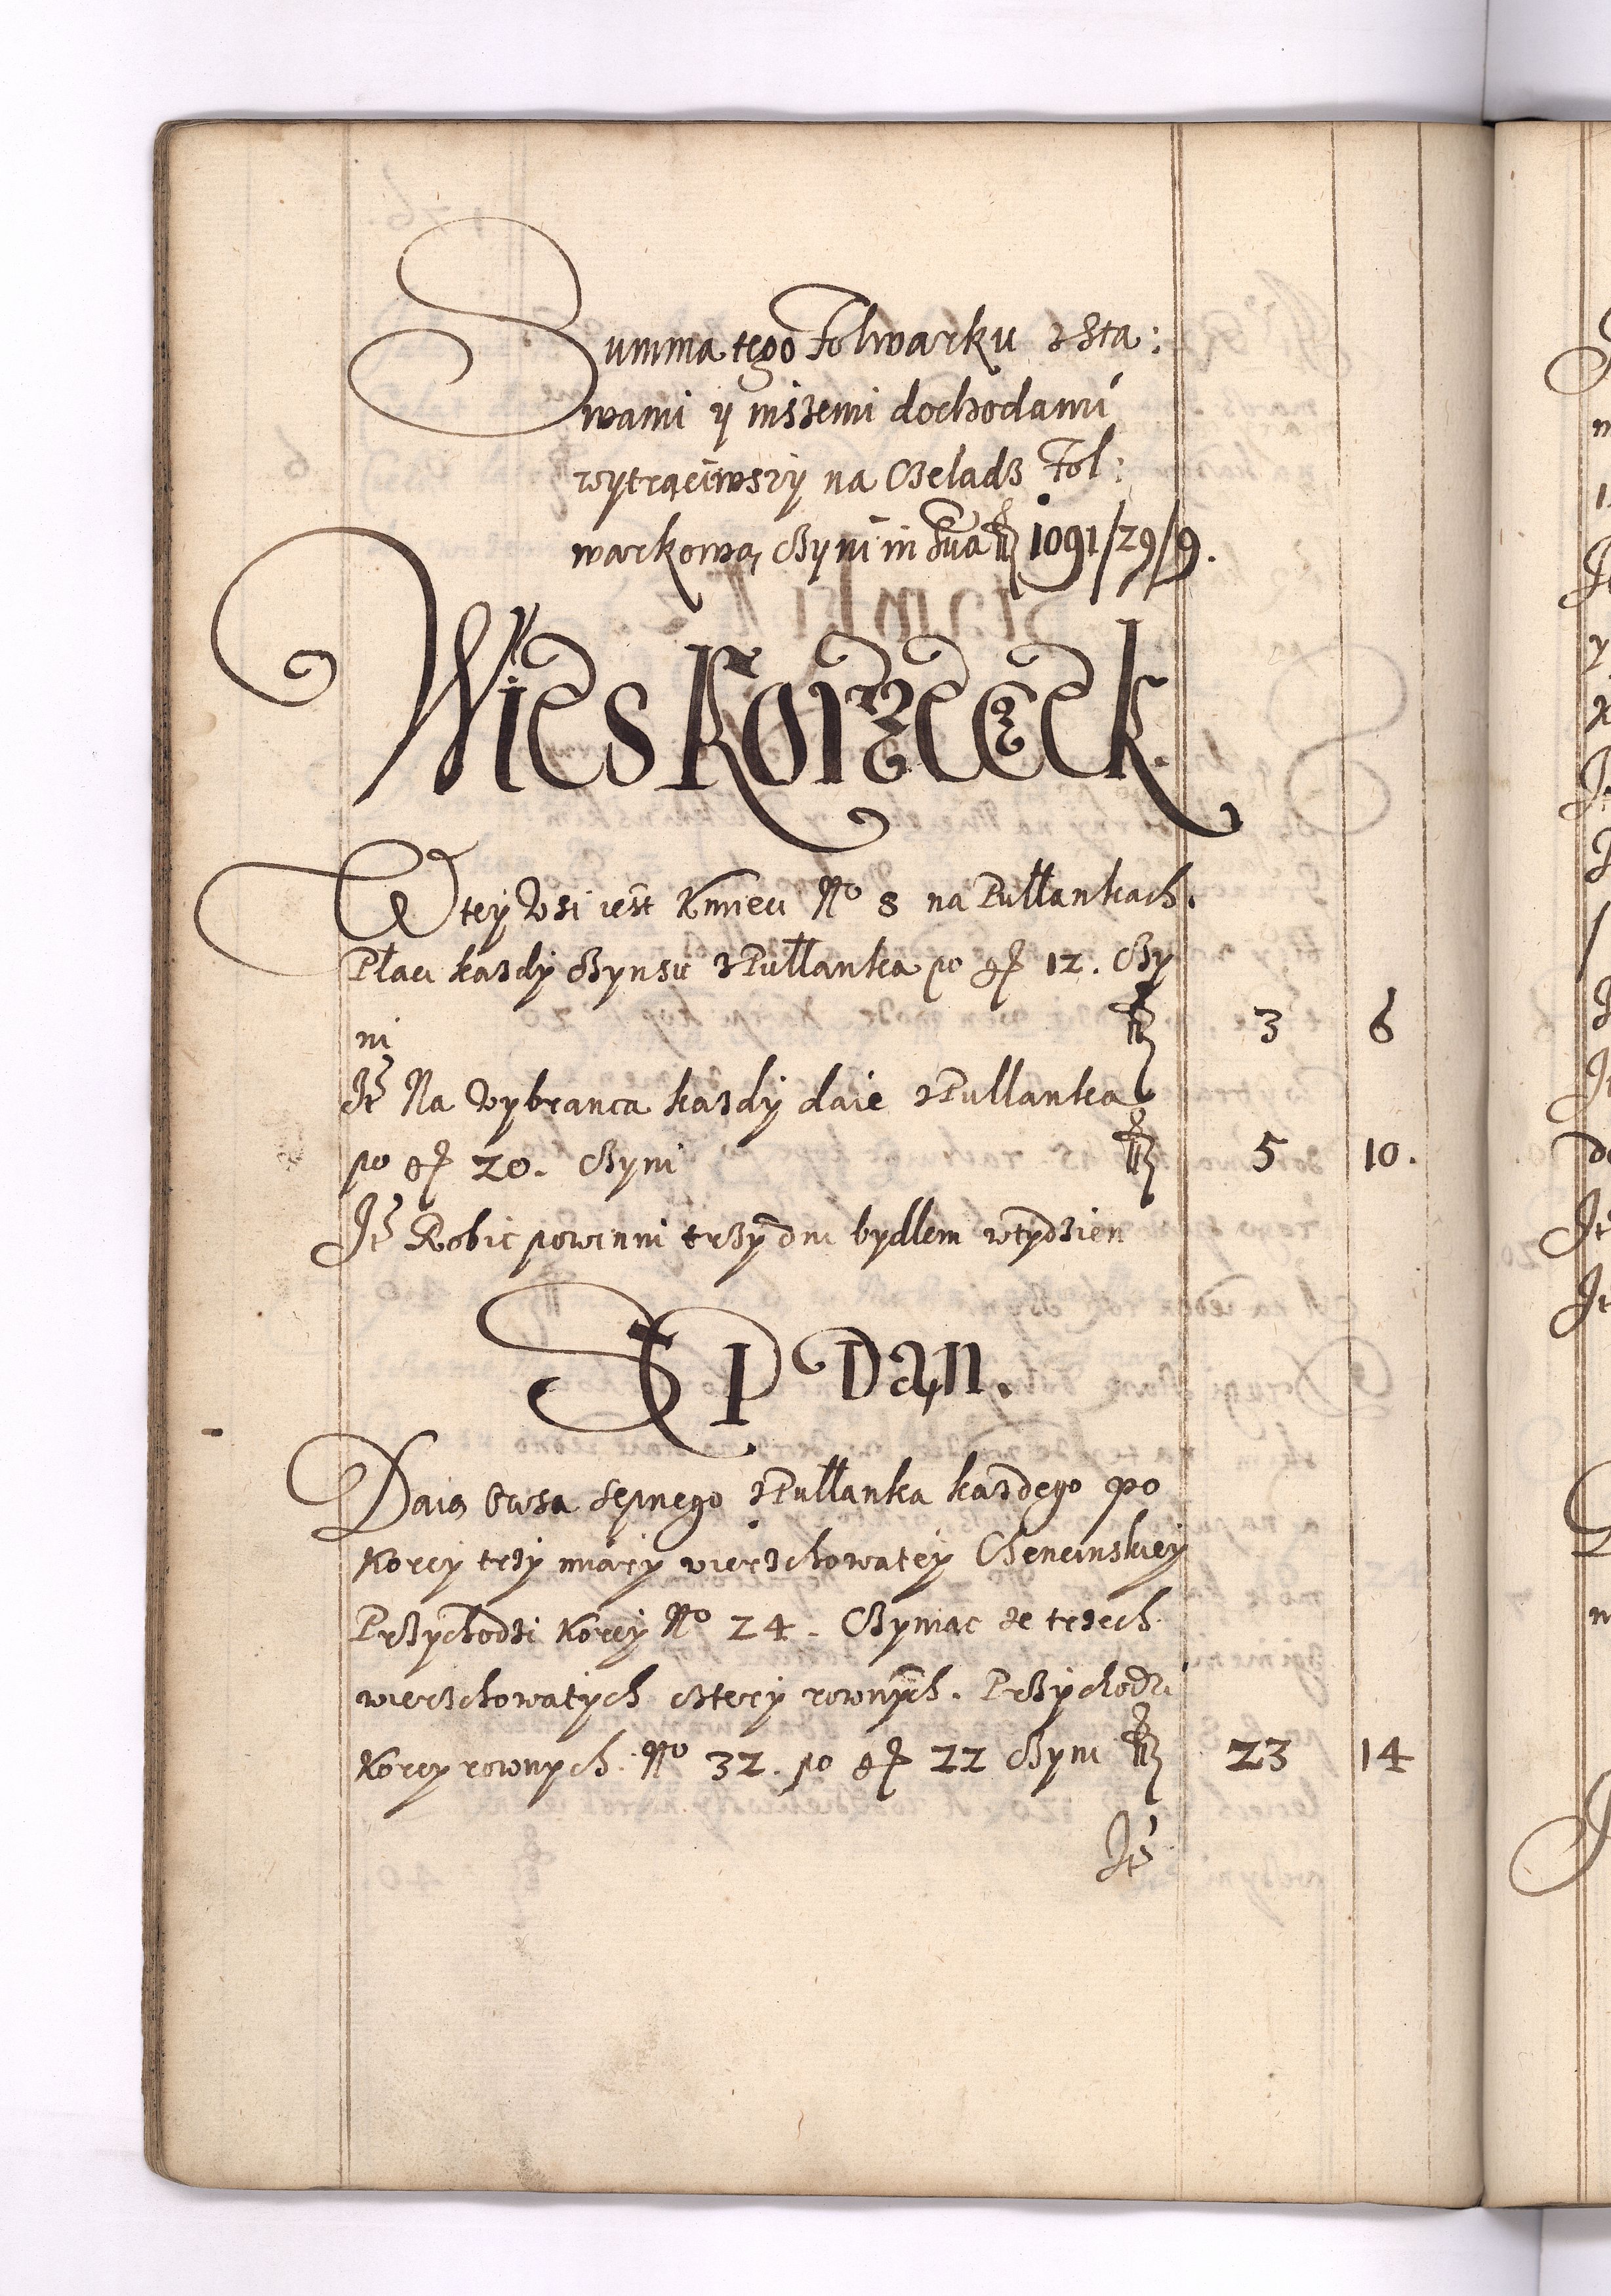 Summa tego Folwarku z Sta:
wami y inszemi dochodami
wytrąciwszy na Czeladz Fol:
warkową, czyni in Sua fl 1091/29/9.
Wies Korzecek.
W tey Wsi iest Kmieci No 8 na Pułłankach.
Płaci kazdy Czynsu z Pułłanka po gr 12. Czy
ni fl 3 6
It Na Wybranca kazdy daie z Pullanka
po gr 20. Czyni fl 5 10.
It Robic powinni trzy dni bydlem w tydzien
SEP Dan.
Daią Owsa sepnego z Pułłanka kazdego po
Korcy trzy miary wierzchowatey Chencinskiey
Przychodzi Korcy No 24. Czyniąc ze trzech
wierzchowatych cztery rownych. Przychodzi
Korcy rownych No 32. po gr 22 Czyni fl 23 14
It